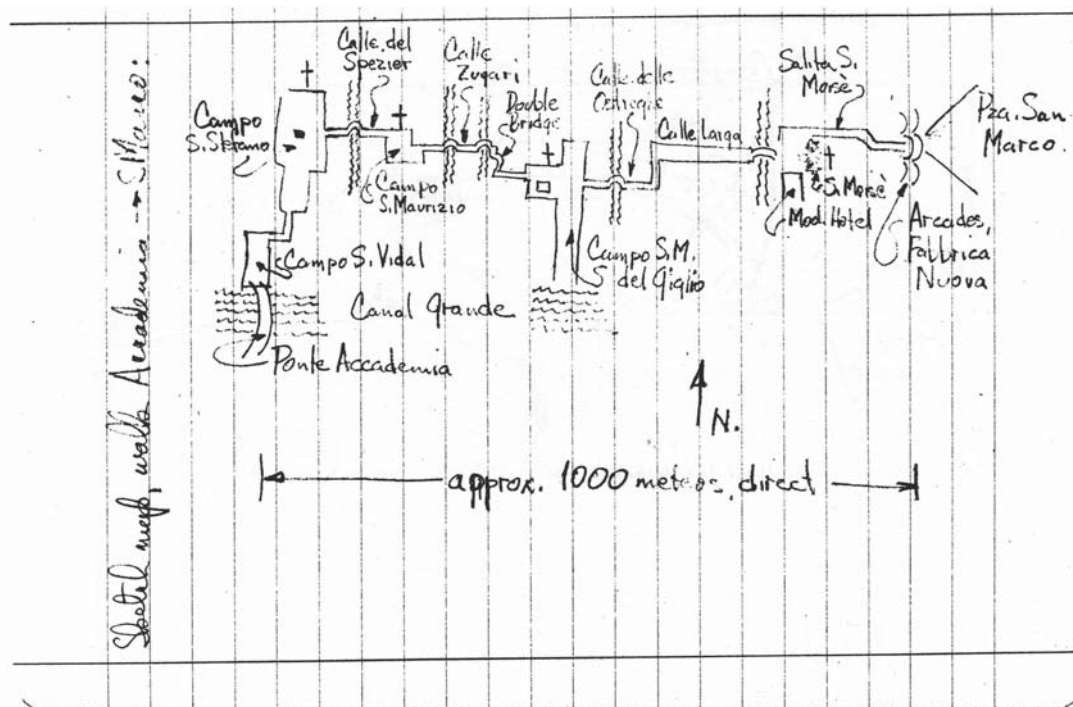 Sketch map, walk Accademia → S. Marco:
Campo
S. Stefano
Calle del
Spezier
Calle
Zugari
Double
Bridge
Calle delle
Ostreghe
Calle Larga
Salita S.
Moisè
Pza. San
Marco.
Campo
S. Maurizio
S. Moisè
Mod. Hotel
Arcades,
Fabbrica
Nuova
Campo S. Vidal
Campo S.M.
del Giglio
Canal Grande
Ponte Accademia
N.
approx. 1000 meters, direct